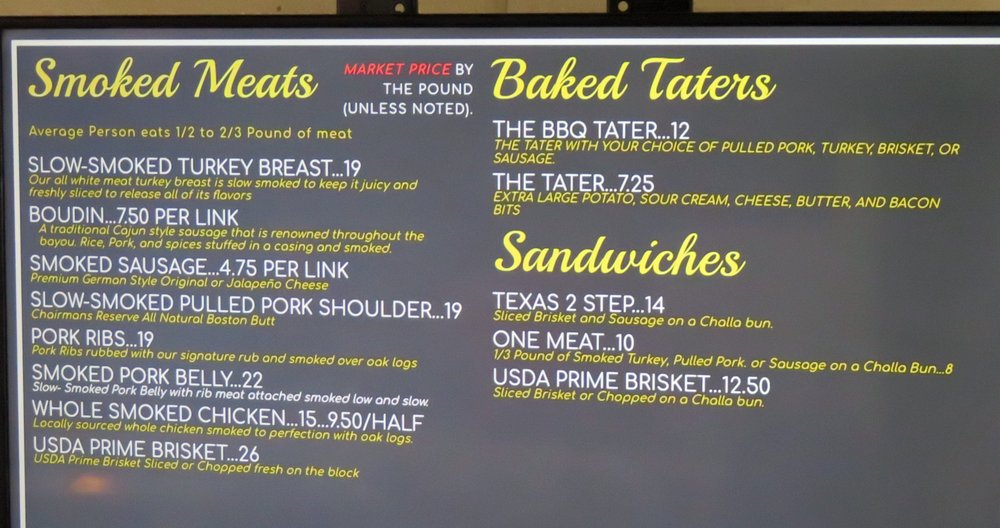 Smoked Meats
MARKET PRICE BY
THE POUND
(UNLESS NOTED).
Average Person eats 1/2 to 2/3 Pound of meat
SLOW-SMOKED TURKEY BREAST...19
Our all white meat turkey breast is slow smoked to keep it juicy and
freshly sliced to release all of its flavors
BOUDIN...7.50 PER LINK
A traditional Cajun style sausage that is renowned throughout the
bayou. Rice, Pork, and spices stuffed in a casing and smoked.
SMOKED SAUSAGE...4.75 PER LINK
Premium German Style Original or Jalapeño Cheese
SLOW-SMOKED PULLED PORK SHOULDER...19
Chairmans Reserve All Natural Boston Butt
PORK RIBS...19
Pork Ribs rubbed with our signature rub and smoked over oak logs
SMOKED PORK BELLY...22
Slow- Smoked Pork Belly with rib meat attached smoked low and slow.
WHOLE SMOKED CHICKEN...15...9.50/HALF
Locally sourced whole chicken smoked to perfection with oak logs.
USDA PRIME BRISKET...26
USDA Prime Brisket Sliced or Chopped fresh on the block
Baked Taters
THE BBQ TATER...12
THE TATER WITH YOUR CHOICE OF PULLED PORK, TURKEY, BRISKET, OR
SAUSAGE.
THE TATER...7.25
EXTRA LARGE POTATO, SOUR CREAM, CHEESE, BUTTER, AND BACON
BITS
Sandwiches
TEXAS 2 STEP...14
Sliced Brisket and Sausage on a Challa bun.
ONE MEAT...10
1/3 Pound of Smoked Turkey, Pulled Pork. or Sausage on a Challa Bun...8
USDA PRIME BRISKET...12.50
Sliced Brisket or Chopped on a Challa bun.